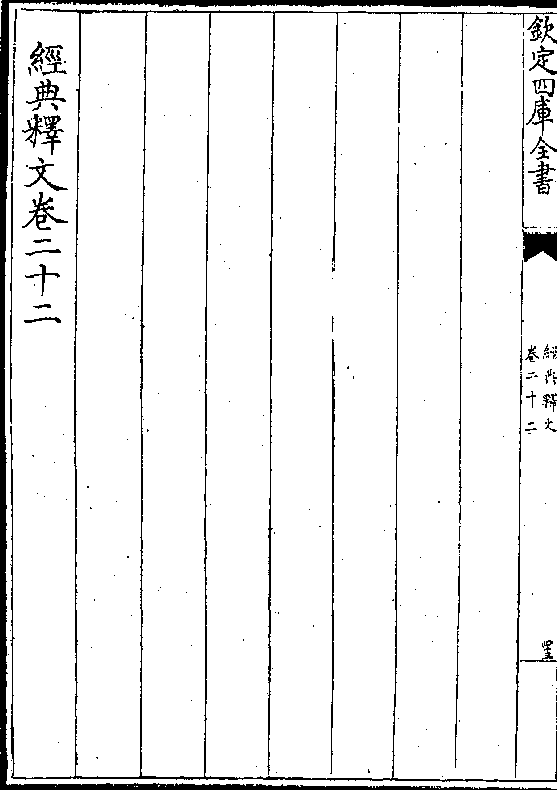 欽定四庫全書
經典釋文
卷二十二
經典釋文卷二十二